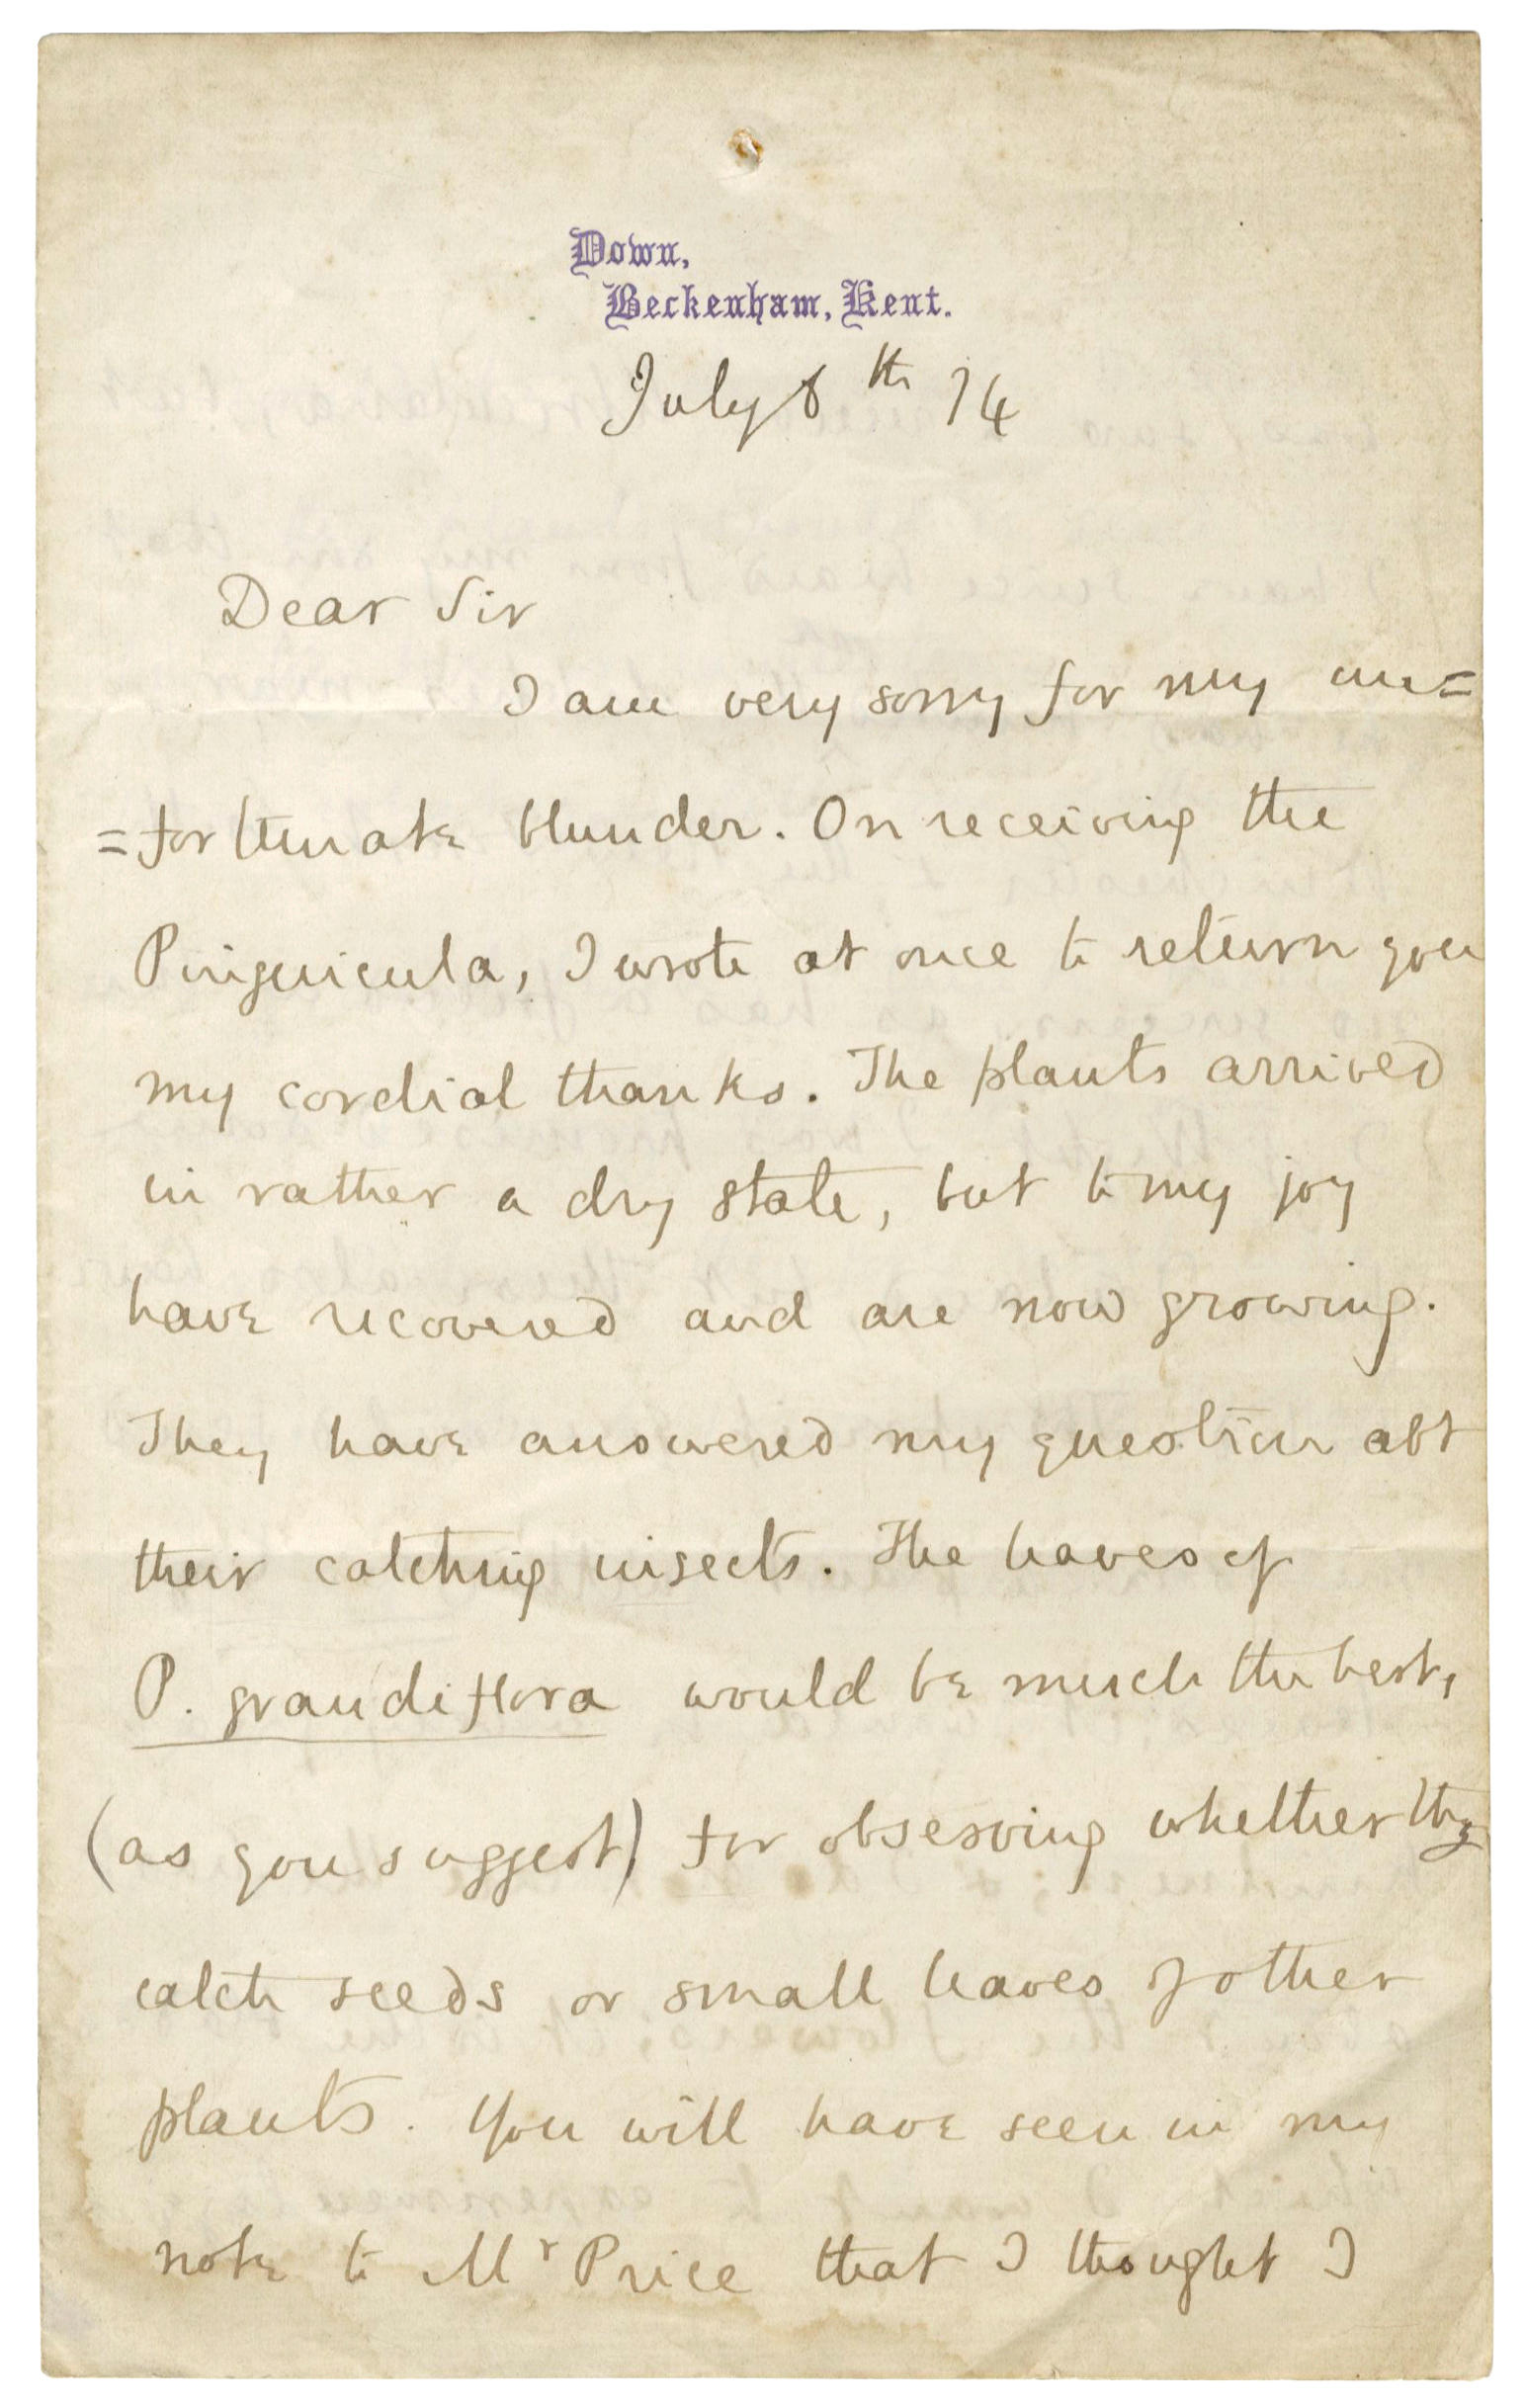 Down,
Beckenham, Kent.
July 8th 74
Dear Sir
I am very sorry for my un=
=fortunate blunder. On receiving the
Pinguicula, I wrote at once to return you
my cordial thanks. The plants arrived
in rather a dry state, but to my joy
have recovered and are now growing.
They have answered my question abt
their catching insects. The leaves of
P. grandiflora would be much the best,
(as you suggest) for observing whether they
catch seeds or small leaves of other
plants. You will have seen in my
note to Mr Price that I thought I